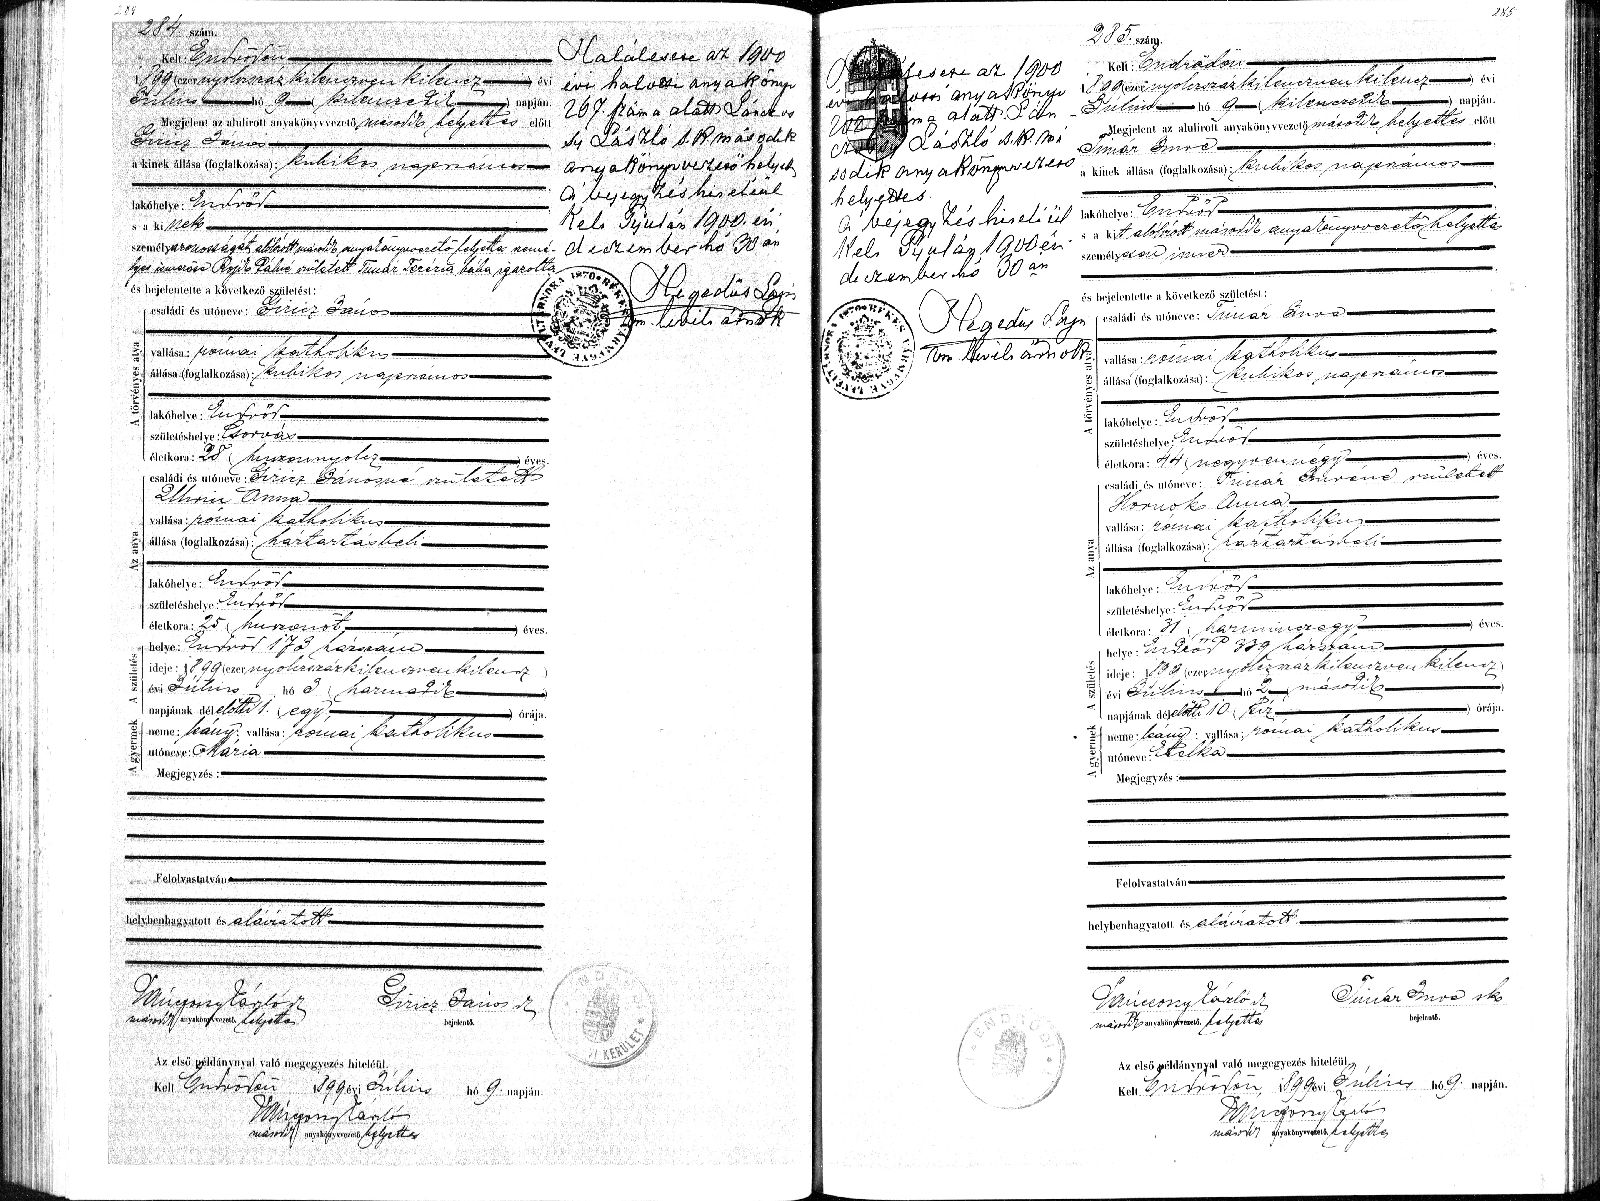 284
284 szám.
Kelt: Endrődön
1899 (ezernyolczszázkilenczvenkilencz) évi
Július hó 9 (kilenczedik) napján.
Megjelent az alulirott anyakönyvvezető második helyettes előtt
Giricz János
a kinek állása (foglalkozása): kubikos napszámos
lakóhelye: Endrőd
s a kinek
személyazonosságát alólirott második anyakönyvvezető helyettes szemé-
lyes ismerőse született Timár Terézia bába igazolta
és bejelentette a következő születést:
A törvényes atya
családi és utóneve: Giricz János
vallása: római katholikus
állása (foglalkozása): kubikos napszámos
lakóhelye: Endrőd
születéshelye: Csorvás
életkora: 28 (huszonnyolcz) éves.
Az anya
családi és utóneve: Giricz Jánosné született
Uhrin Anna
vallása: római katholikus
állása (foglalkozása): háztartásbeli
lakóhelye: Endrőd
születéshelye: Endrőd
életkora: 25 (huszonöt) éves.
A születés
helye: Endrőd 173 házszám
ideje: 1899 (ezernyolczszázkilenczvenkilencz)
évi Július hó 3 (harmadik)
napjának délelőtti 1. (egy) órája.
A gyermek
neme: leány; vallása: római katholikus
utóneve: Mária
Megjegyzés:
Felolvastatván
helybenhagyatott és aláíratott
második anyakönyvvezető helyettes
Giricz János sk
bejelentő.
Az első példánynyal való megegyezés hiteléül.
Kelt Endrődön 1899 évi Július hó 9. napján.
második anyakönyvvezető helyettes
Halálesete az 1900
évi halotti anyakönyv
207. száma alatt
László s.k. második
anyakönyvvezető helyett
A bejegyzés hiteléül
Kelt Gyulán 1900 évi
deczember hó 30 án
Hegedűs
vm. levéltárnok
BÉKÉSVÁRMEGYE LEVÉLTÁRNOKA 1870
KERÜLET
285
285. szám.
Kelt: Endrődön
1899 (ezernyolczszázkilenczvenkilencz) évi
Július hó 9 (kilenczedik) napján.
Megjelent az alulirott anyakönyvvezető második helyettes előtt
Timár Imre
a kinek állása (foglalkozása): kubikos napszámos
lakóhelye: Endrőd
s a kit alólirott második anyakönyvvezető helyettes
személyesen ismer
és bejelentette a következő születést:
A törvényes atya
családi és utóneve: Timár Imre
vallása: római katholikus
állása (foglalkozása): kubikos napszámos
lakóhelye: Endrőd
születéshelye: Endrőd
életkora: 44 (negyvennégy) éves.
Az anya
családi és utóneve: Timár Imréné született
Hornok Anna
vallása: római katholikus
állása (foglalkozása): háztartásbeli
lakóhelye: Endrőd
születéshelye: Endrőd
életkora: 31 (harminczegy) éves.
A születés
helye: Endrőd 339 házszám
ideje: 1899 (ezernyolczszázkilenczvenkilencz)
évi Július hó 2 (második)
napjának délelőtti 10 (tíz) órája.
A gyermek
neme: leány; vallása: római katholikus
utóneve: Etelka
Megjegyzés:
Felolvastatván
helybenhagyatott és aláíratott
második anyakönyvvezető helyettes
Timár Imre sk
bejelentő.
Az első példánynyal való megegyezés hiteléül.
Kelt Endrődön, 1899 évi Július hó 9. napján.
második anyakönyvvezető helyettes
az 1900
évi halotti anyakönyv
száma alatt
László s.k. má
sodik anyakönyvvezető
helyettes.
A bejegyzés hiteléül
Kelt Gyulán 1900 évi
deczember hó 30 án
Hegedűs
vm levéltárnok
BÉKÉSVÁRMEGYE LEVÉLTÁRNOKA 1870
ENDRŐDI